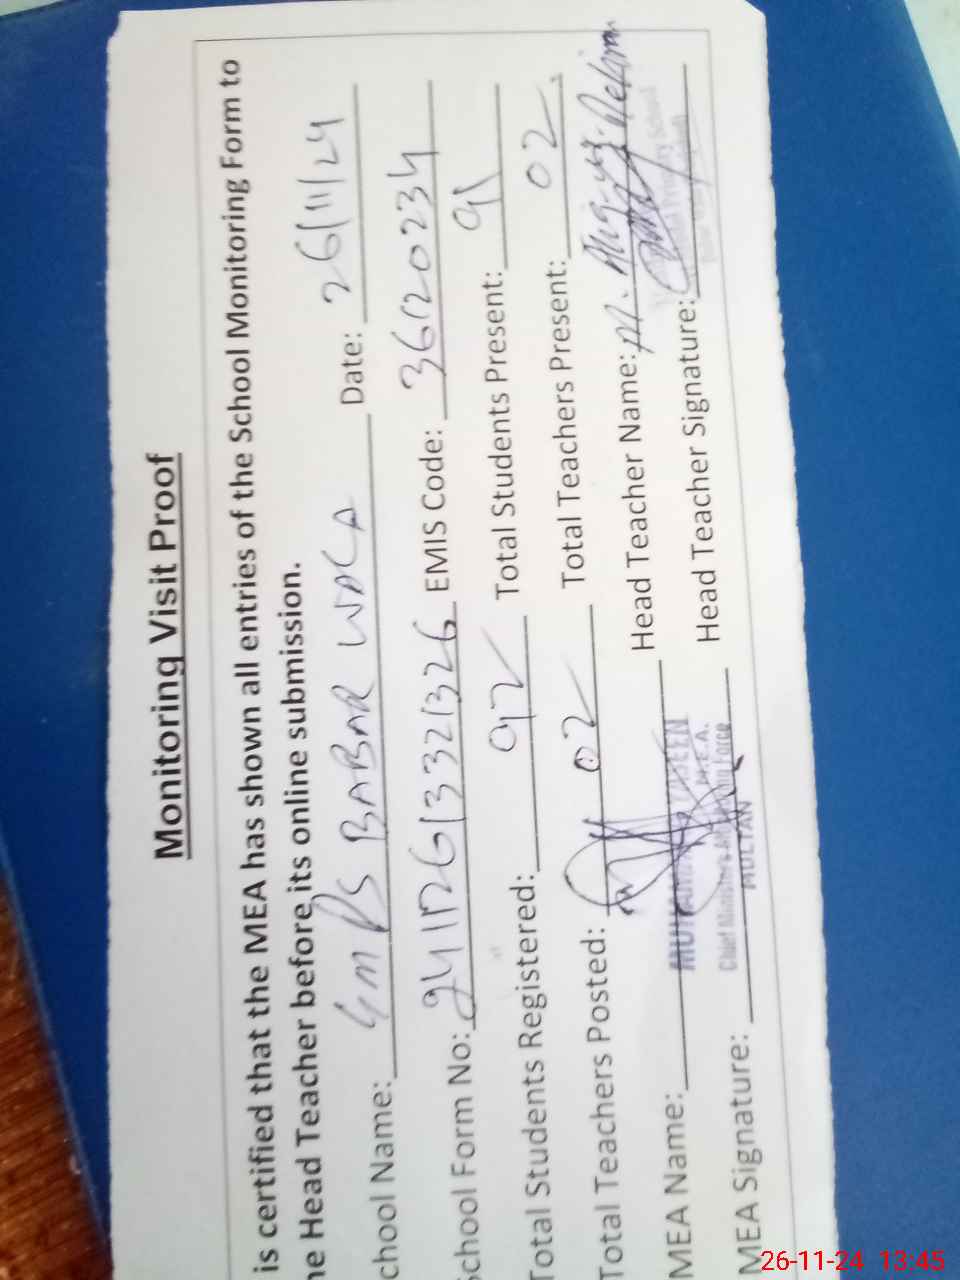 Monitoring Visit Proof
is certified that the MEA has shown all entries of the School Monitoring Form to
he Head Teacher before its online submission.
chool Name: GMPS BABAR WALA Date: 26/11/24
School Form No: EMIS Code: 36120234
Total Students Registered: 92 Total Students Present: 91
Total Teachers Posted: 02 Total Teachers Present: 02
MEA Name: Head Teacher Name: M.
MUHAMMAD M.E.A.
Chief Minister's Monitoring Force
MULTAN
MEA Signature: Head Teacher Signature:
Primary School
26-11-24 13:45